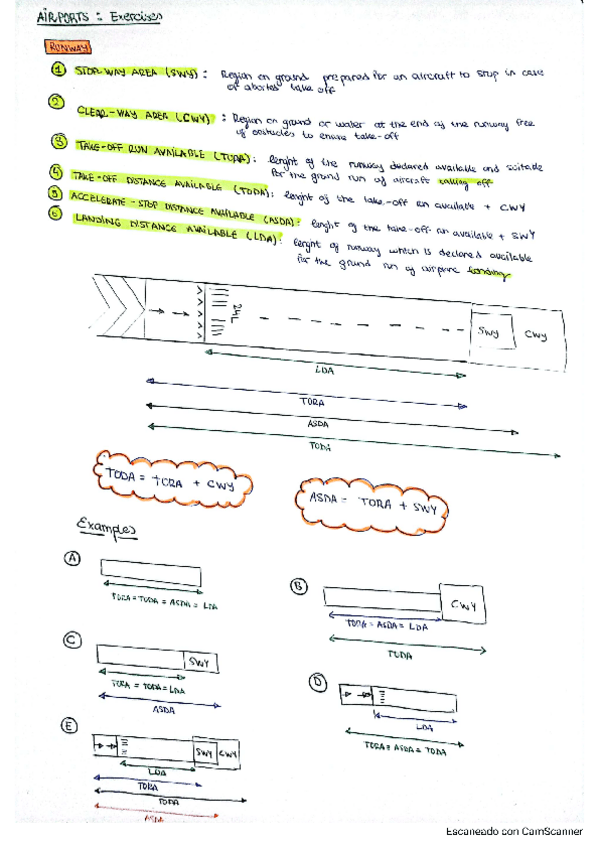 AIRPORTS: Exercises
RUNWAY
1 STOP-WAY AREA (SWY): Region on ground prepared for an aircraft to stop in case
of aborted take off
2 CLEAR-WAY AREA (CWY): Region on ground or water at the end of the runway free
of obstacles to ensure take-off
3 TAKE-OFF RUN AVAILABLE (TORA): lenght of the runway declared available and suitable
for the ground run of aircraft taking off
4 TAKE-OFF DISTANCE AVAILABLE (TODA): lenght of the take-off run available + CWY
5 ACCELERATE-STOP DISTANCE AVAILABLE (ASDA): lenght of the take-off run available + SWY
6 LANDING DISTANCE AVAILABLE (LDA): lenght of runway which is declared available
for the ground run of airplane landing
24L
SWY
CWY
LDA
TORA
ASDA
TODA
TODA = TORA + CWY
ASDA = TORA + SWY
Examples
A
TORA = TODA = ASDA = LDA
B
CWY
TORA = ASDA = LDA
TODA
C
SWY
TORA = TODA = LDA
ASDA
D
LDA
TORA = ASDA = TODA
E
SWY
CWY
LDA
TORA
TODA
ASDA
Escaneado con CamScanner